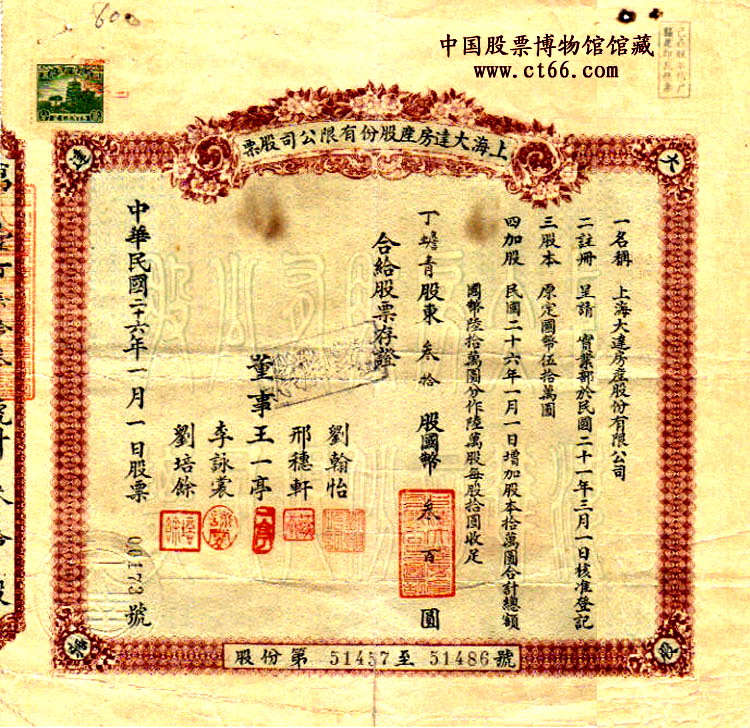 600
中国股票博物馆馆藏
www.ct66.com
上海大達房產股份有限公司股票
大
達
股
票
一名稱 上海大達房產股份有限公司
二註冊 呈請 實業部於民國二十一年三月一日核准登記
三股本 原定國幣伍拾萬圓
四加股 民國二十六年一月一日增加股本拾萬圓合計總額
國幣陸拾萬圓分作陸萬股每股拾圓收足
丁蟾青股東 叁拾 股國幣 叁百 圓
合給股票存證
劉翰怡
邢穗軒
董事王一亭
李詠裳
劉培餘
中華民國二十六年一月一日股票 00173 號
股份第 51457 至 51486 號